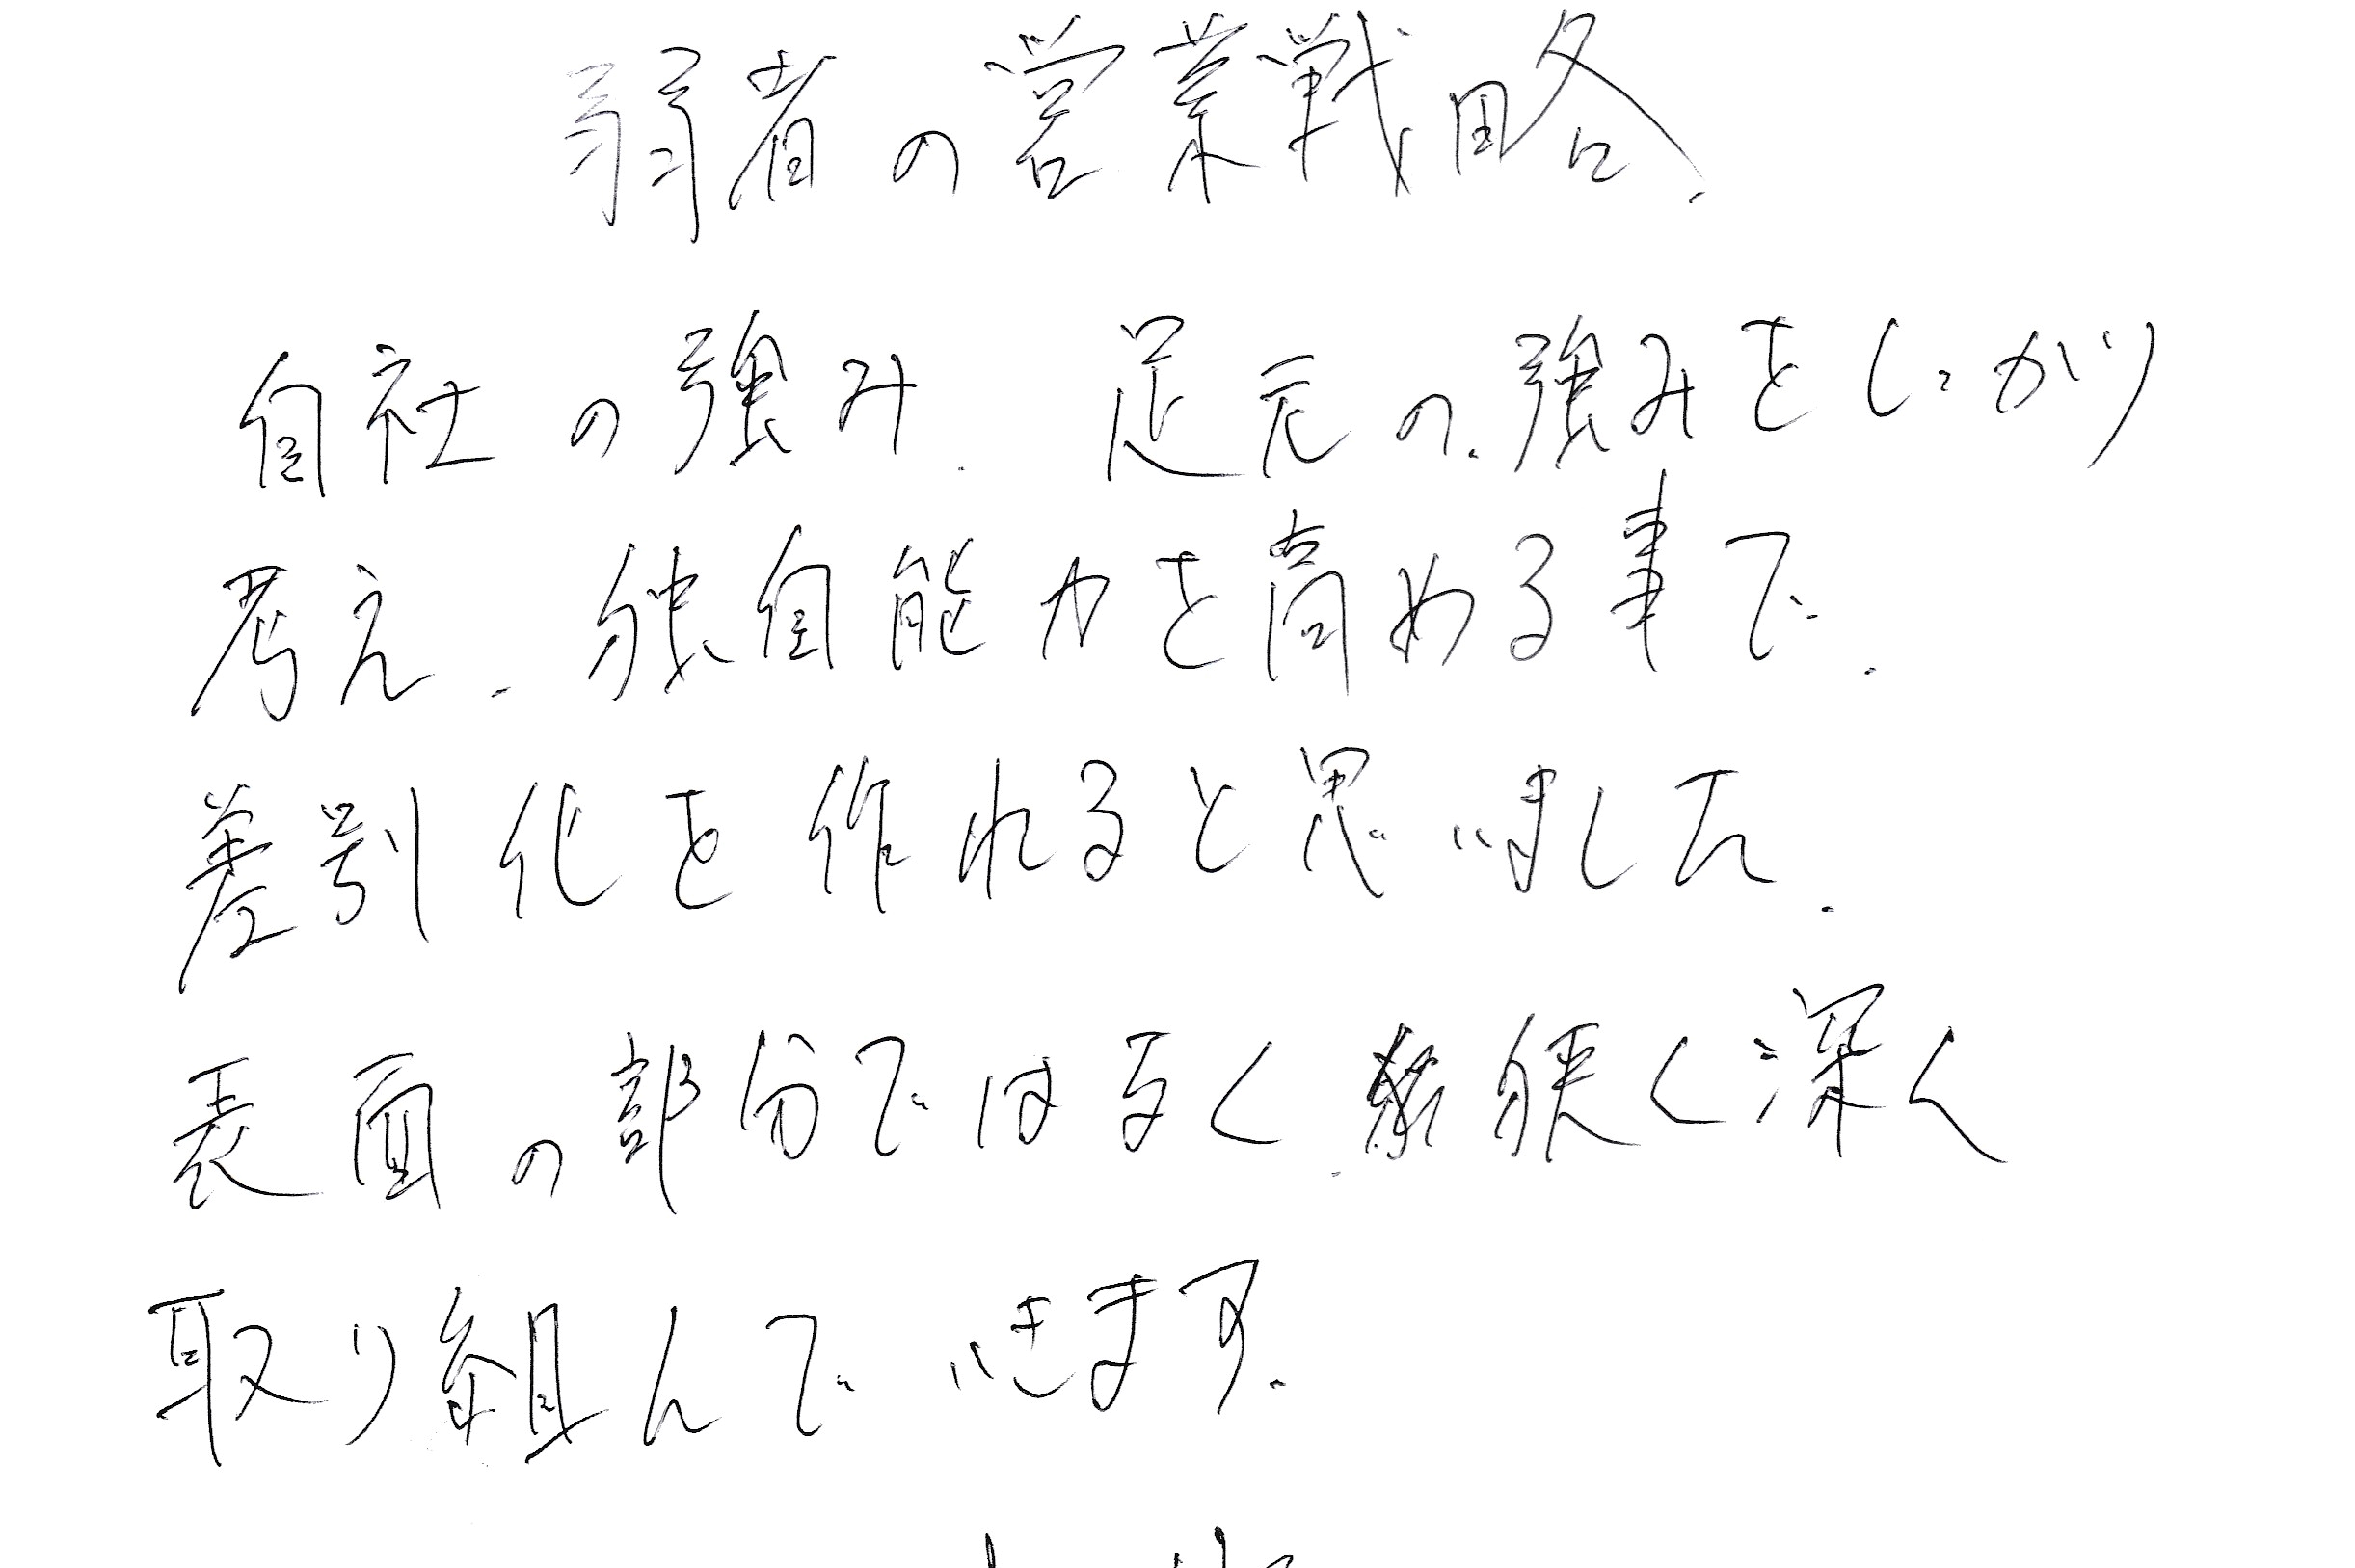 弱者の営業戦略.
自社の強み. 足元の.強みをしっかり
考え. 独自能力を高める事で.
差別化を作れると思いました.
表面の部分ではなく. 狭く深く
取り組んでいきます.